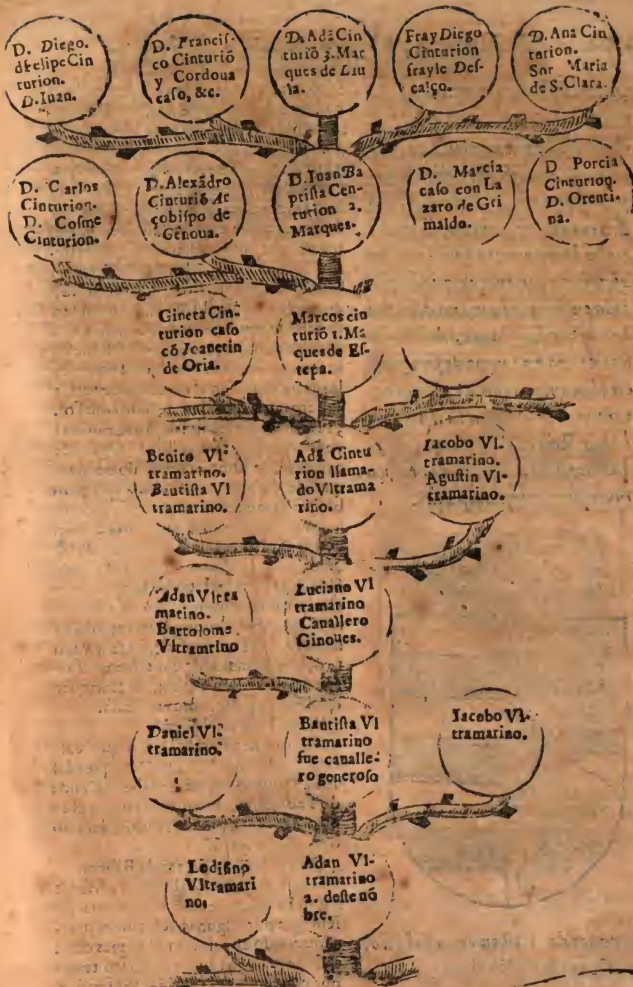 D. Diego.
dfelipe Cin
turion.
D. Iuan.
D. Francis-
co Cinturiõ
y Cordoua
caso, &c.
D. Adã Cin
turiõ 3. Mar
ques de Lau
la.
Fray Diego
Cinturion
frayle Des-
calço.
D. Ana Cin
turion.
Sor Maria
de S. Clara.
D. Carlos
Cinturion.
D. Cosme
Cinturion.
D. Alexãdro
Cinturiõ Ar
çobispo de
Genoua.
D. Iuan Ba
ptista Cen-
turion 2.
Marques.
D. Marcia
caso con La
zaro de Gri
maldo.
D Porcia
Cinturion.
D. Orenti-
na.
Gineta Cin-
turion caso
cõ Ioanetin
de Oria.
Marcos cin
turiõ 1. Ma
ques de Es-
tepa.
Benito Vl-
tramarino.
Bautista Vl
tramarino.
Adã Cintu
rion llama-
do Vltrama
rino.
Iacobo Vl-
tramarino.
Agustin Vl-
tramarino.
Adan Vltra
marino.
Bartolome
Vltramrino
Luciano Vl
tramarino
Cauallero
Ginoues.
Daniel Vl-
tramarino.
Bautista Vl
tramarino
fue caualle-
ro generoso
Iacobo Vl-
tramarino.
Vltramari
no.
Adan Vl-
tramarino
2. deste nõ
bre.